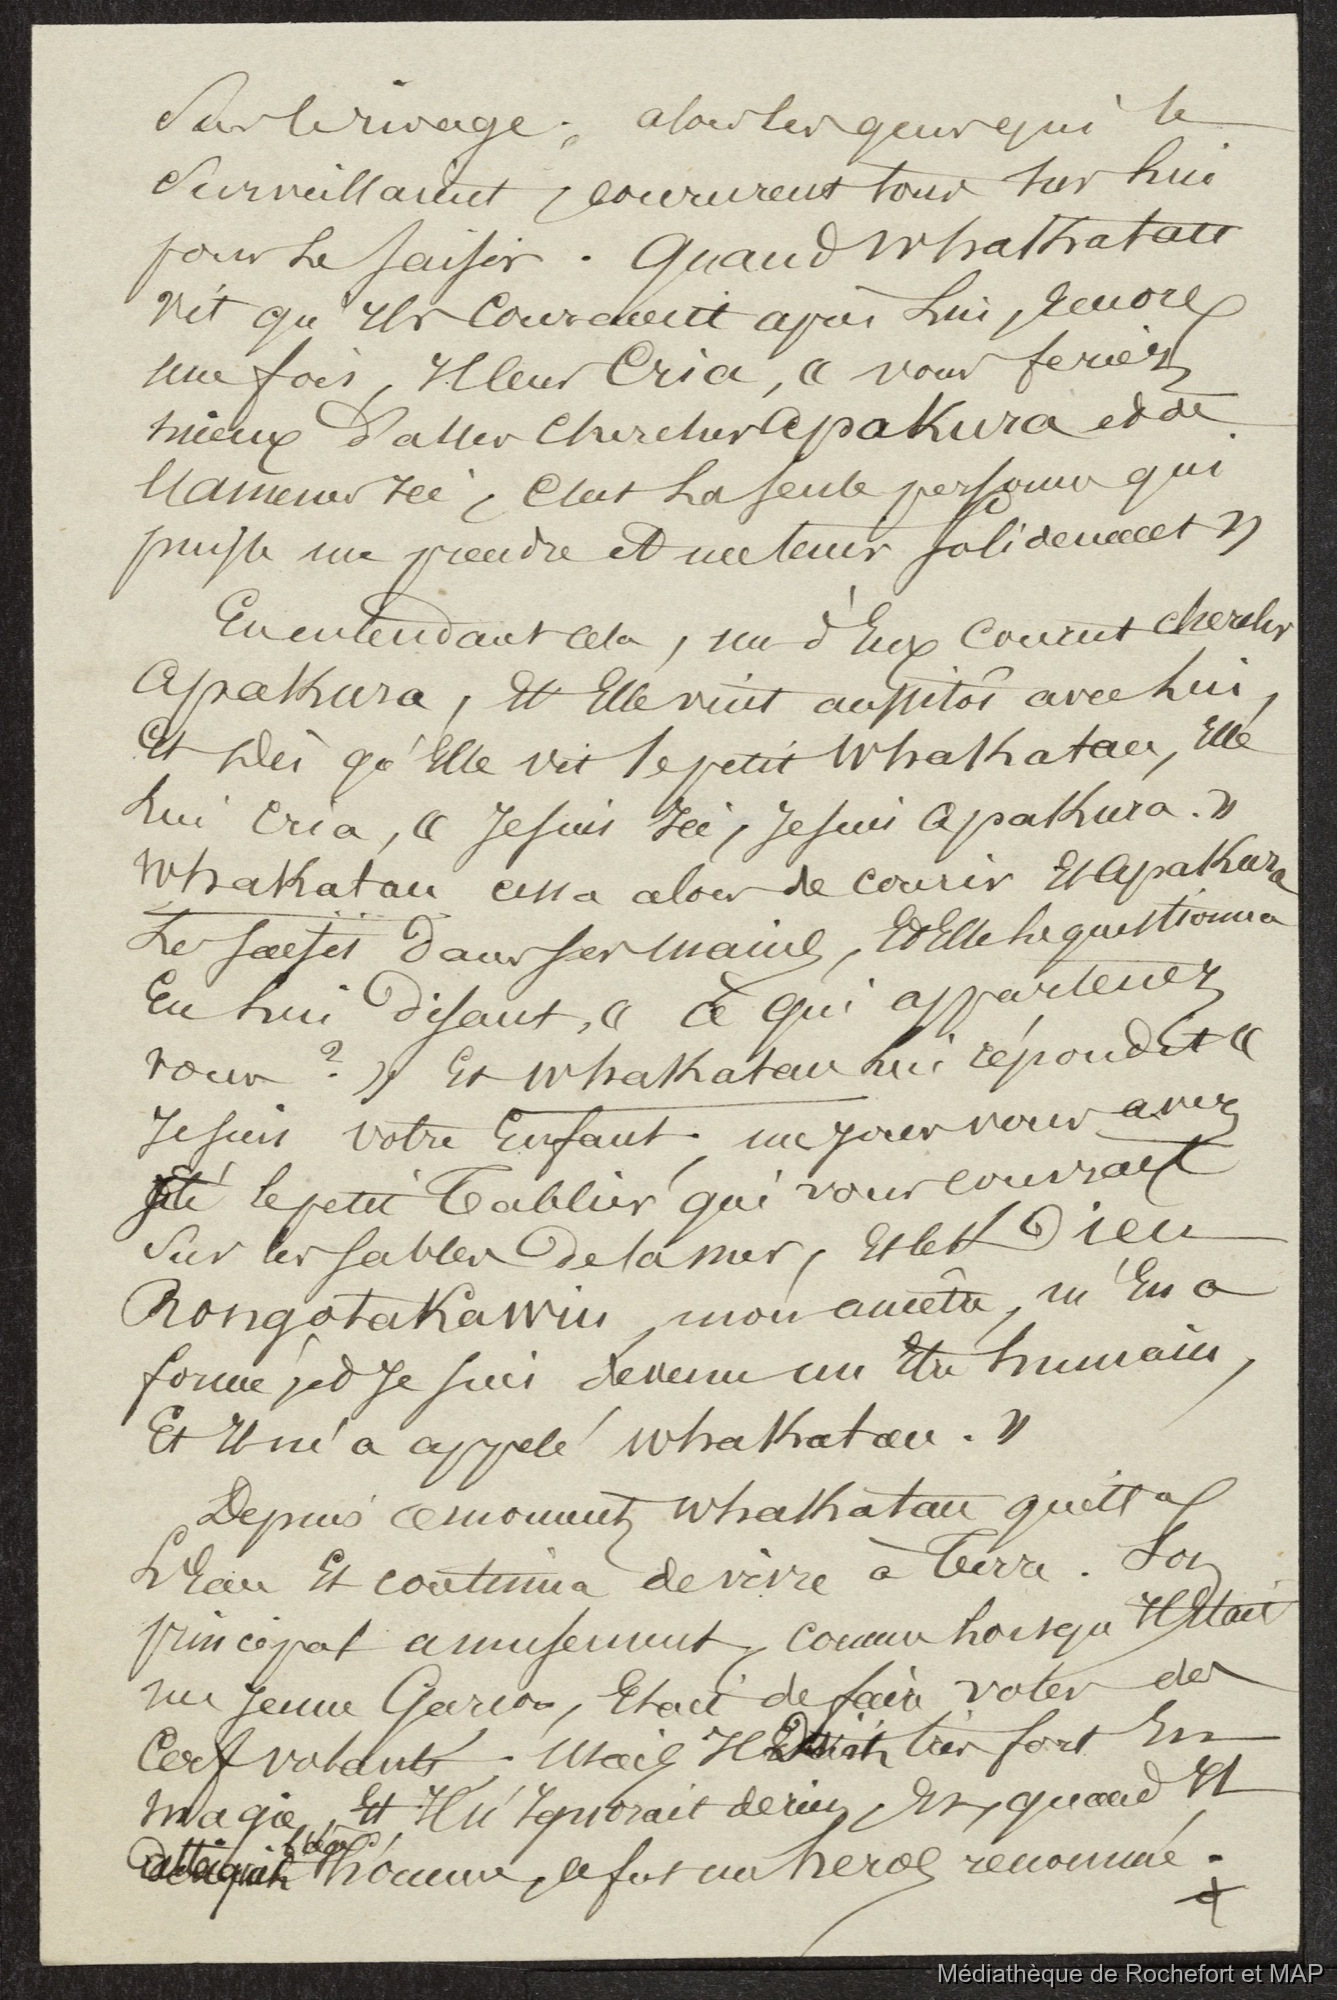 Sur le rivage ; alors les gens qui le
Surveillaient, coururent tous sur lui
pour le saisir. Quand Whakatau
vit qu'ils couraient après lui, encore
une fois, Il leur Cria, « vous feriez
mieux d'aller chercher Apakura et de
l'amener Ici, C'est la seule personne qui
puisse me prendre et me tenir solidement »
En entendant cela, un d'Eux Courut chercher
Apakura, Et Elle vint aussitôt avec lui,
Et Dès qu'Elle vit le petit Whakatau, Elle
lui Cria, « Je suis Ici, Je suis Apakura. »
Whakatau cessa alors de courir Et Apakura
le saisit Dans ses mains, Et Elle le questionna
En lui Disant, « à qui appartenez
vous ? » Et Whakatau lui répondit «
Je suis votre Enfant, un jour vous avez
jeté le petit Tablier qui vous couvrait
Sur les sables De la mer, Et le Dieu
Rongotakawiu, mon ancêtre, m'En a
formé, et Je suis devenu un Etre humain,
Et Il m'a appelé Whakatau. »
Depuis ce moment Whakatau quitta
L'Eau Et continua de vivre à Terre. Son
principal amusement, comme lorsqu'Il Etait
un jeune Garçon, Etait de faire voler des
Cerf volants. Mais Il Devint très fort En
magie, Et Il n'Ignorait de rien, Et, quand Il
atteignit l'âge d'homme, ce fut un héros renommé.